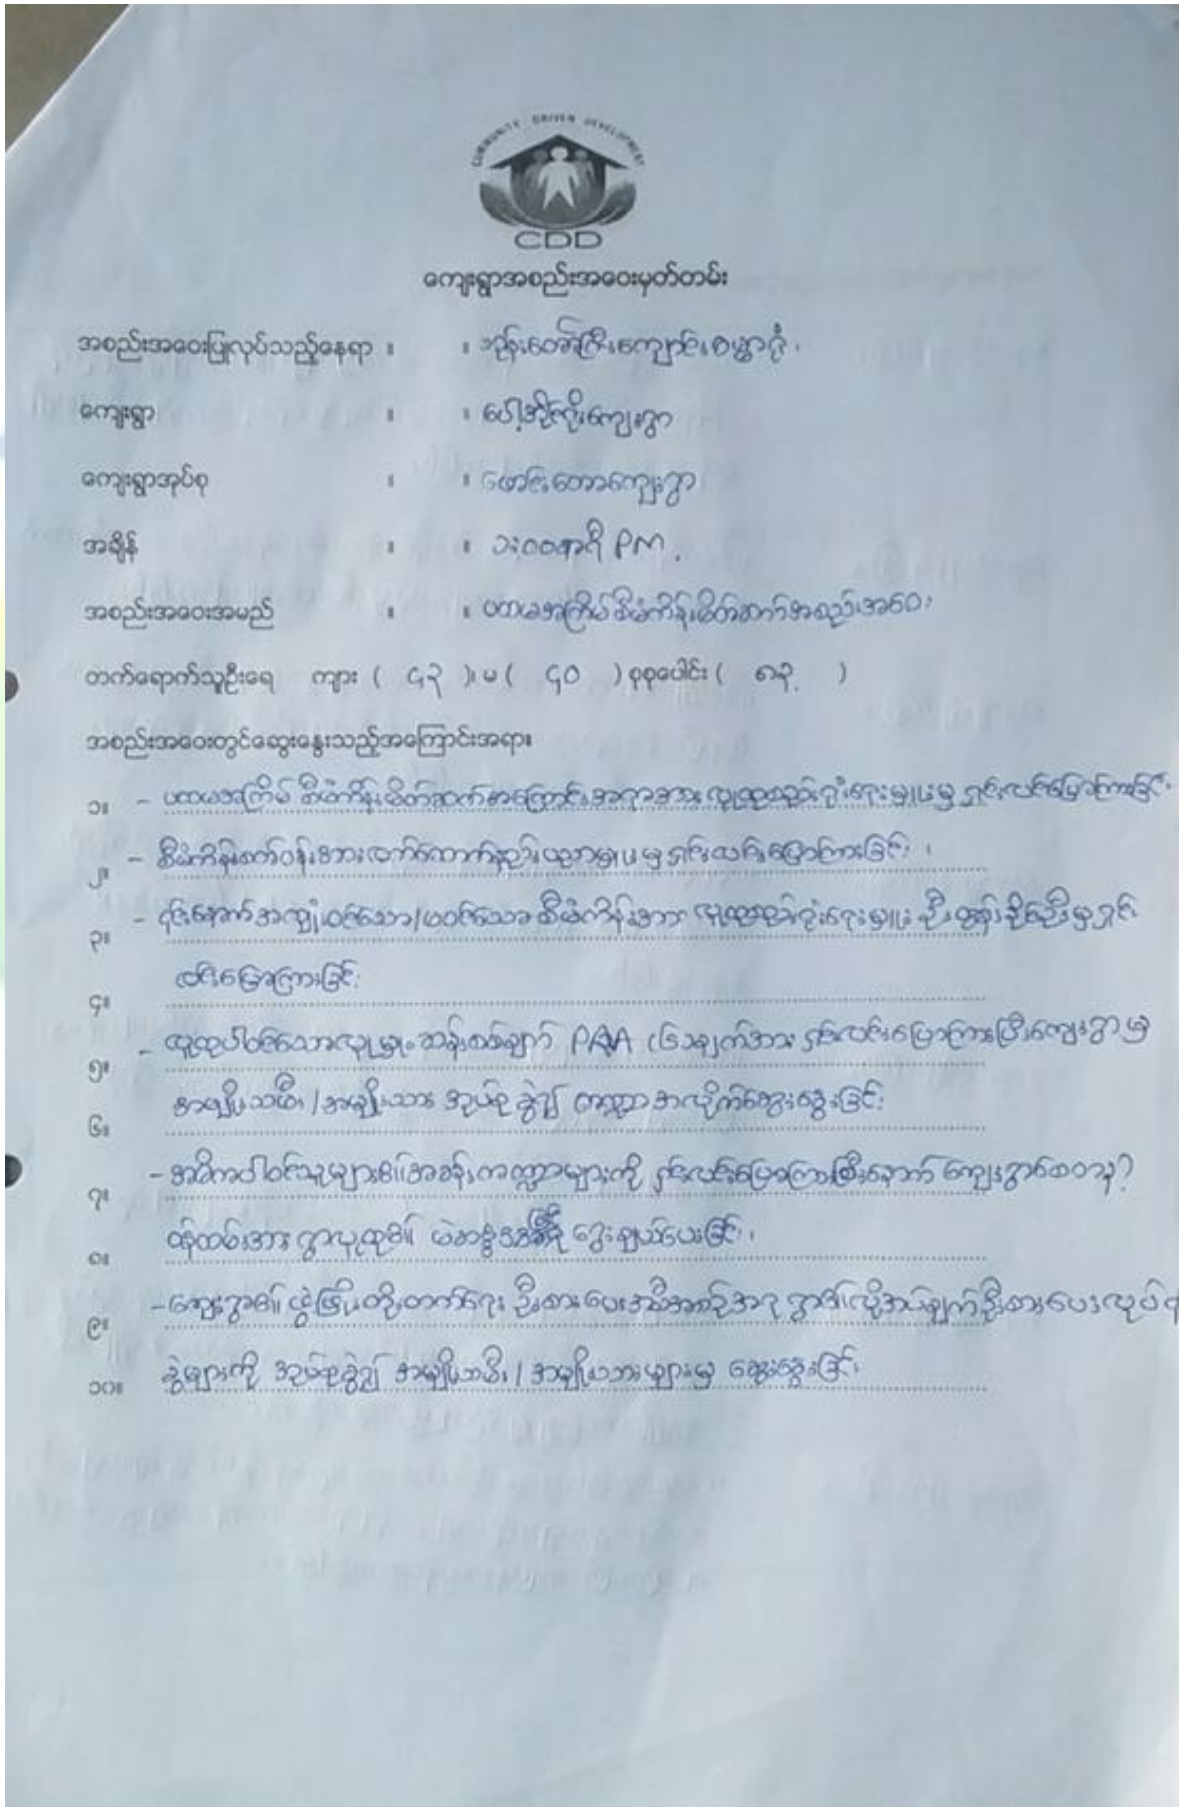 COMMUNITY DRIVEN DEVELOPMENT
CDD
ကျေးရွာအစည်းအဝေးမှတ်တမ်း
အစည်းအဝေးပြုလုပ်သည့်နေရာ ။ ။ ဘုန်းတော်ကြီးကျောင်း ဓမ္မာရုံ ၊
ကျေးရွာ ။ ။ ပေါ့အိုင်ကိုးကျေးရွာ
ကျေးရွာအုပ်စု ။ ။ ဖောင်းတောကျေးရွာ
အချိန် ။ ။ ၁း၀၀နာရီ PM .
အစည်းအဝေးအမည် ။ ။ ပထမအကြိမ် စီမံကိန်းမိတ်ဆက်အစည်းအဝေး
တက်ရောက်သူဦးရေ ကျား ( ၄၃ )၊ မ ( ၄၀ ) စုစုပေါင်း ( ၈၃ )
အစည်းအဝေးတွင်ဆွေးနွေးသည့်အကြောင်းအရာ။
၁။ - ပထမအကြိမ် စီမံကိန်းမိတ်ဆက်အကြောင်းအရာအား လူထုစည်းရုံးရေးမှူးမှ ရှင်းလင်းပြောကြားခြင်း
၂။ - စီမံကိန်းစက်ဝန်းအား လက်ထောက်နည်းပညာမှူးမှ ရှင်းလင်းပြောကြားခြင်း ၊
၃။ - ၎င်းနောက် အကျုံးဝင်သော/မဝင်သော စီမံကိန်းအား လူထုစည်းရုံးရေးမှူး ဦးထွန်းနိုင်ဦးမှ ရှင်း
၄။ လင်းပြောကြားခြင်း
၅။ - လူထုပါဝင်သောလူမှု ဆန်းစစ်ချက် PAA (၆)ချက်အား ရှင်းလင်းပြောကြားပြီး ကျေးရွာမှ
၆။ အမျိုးသမီး / အမျိုးသား အုပ်စုခွဲ၍ ကဏ္ဍအလိုက်ဆွေးနွေးခြင်း
၇။ - အဓိကပါဝင်သူများ၏ အခန်းကဏ္ဍများကို ရှင်းလင်းပြောကြားပြီးနောက် ကျေးရွာစေတနာ့
၈။ ဝန်ထမ်းအား ရွာလူထု၏ မဲဆန္ဒ ရွေးချယ်ပေးခြင်း ၊
၉။ - ကျေးရွာ၏ ဖွံ့ဖြိုးတိုးတက်ရေး ဦးစားပေးအစီအစဉ်အရ ရွာ၏လိုအပ်ချက်ဦးစားပေးလုပ်
၁၀။ ခွဲများကို အုပ်စုခွဲ၍ အမျိုးသမီး / အမျိုးသားများမှ ဆွေးနွေးခြင်း